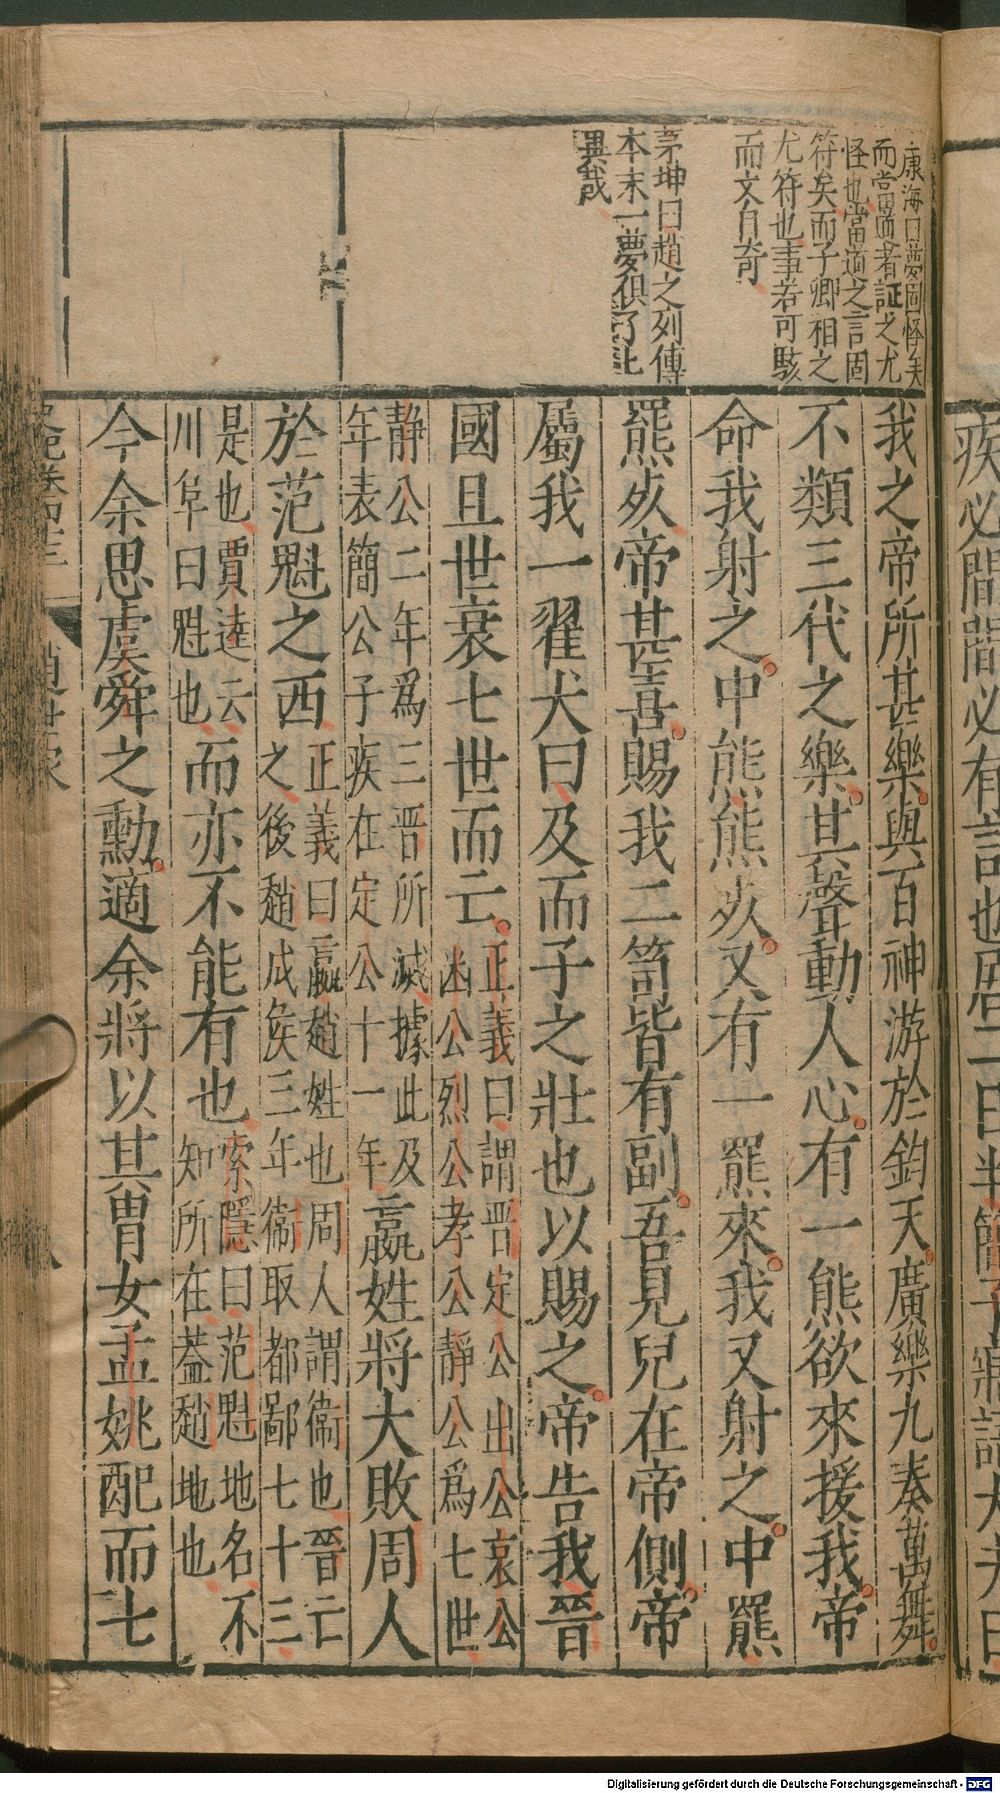 康海曰夢固怪矣
而當道者証之尤
怪也當道之言固
符矣而子卿相之
尤符也事若可駭
而文自奇
茅坤曰趙之列傳
本末一夢俱了此
異哉
我之帝所甚樂與百神游於鈞天廣樂九奏萬舞
不類三代之樂其聲動人心有一熊欲來援我帝
命我射之中熊熊死又有一羆來我又射之中羆
羆死帝甚喜賜我二笥皆有副吾見兒在帝側帝
屬我一翟犬曰及而子之壯也以賜之帝告我晉
國且世衰七世而亡
正義曰謂晉定公出公哀公
幽公烈公孝公靜公爲七世
靜公二年爲三晋所滅據此及
年表簡公子疾在定公十一年
嬴姓將大敗周人
於范魁之西
正義曰嬴趙姓也周人謂衞也晉亡
之後趙成侯三年衞取都鄙七十三
是也賈逵云
川阜曰魁也
而亦不能有也
索隱曰范魁地名不
知所在蓋趙地也
今余思虞舜之勳適余將以其胄女孟姚配而七
趙世家
疾必間間必有言也居二日半簡子寤語大夫曰
Digitalisierung gefördert durch die Deutsche Forschungsgemeinschaft - DFG